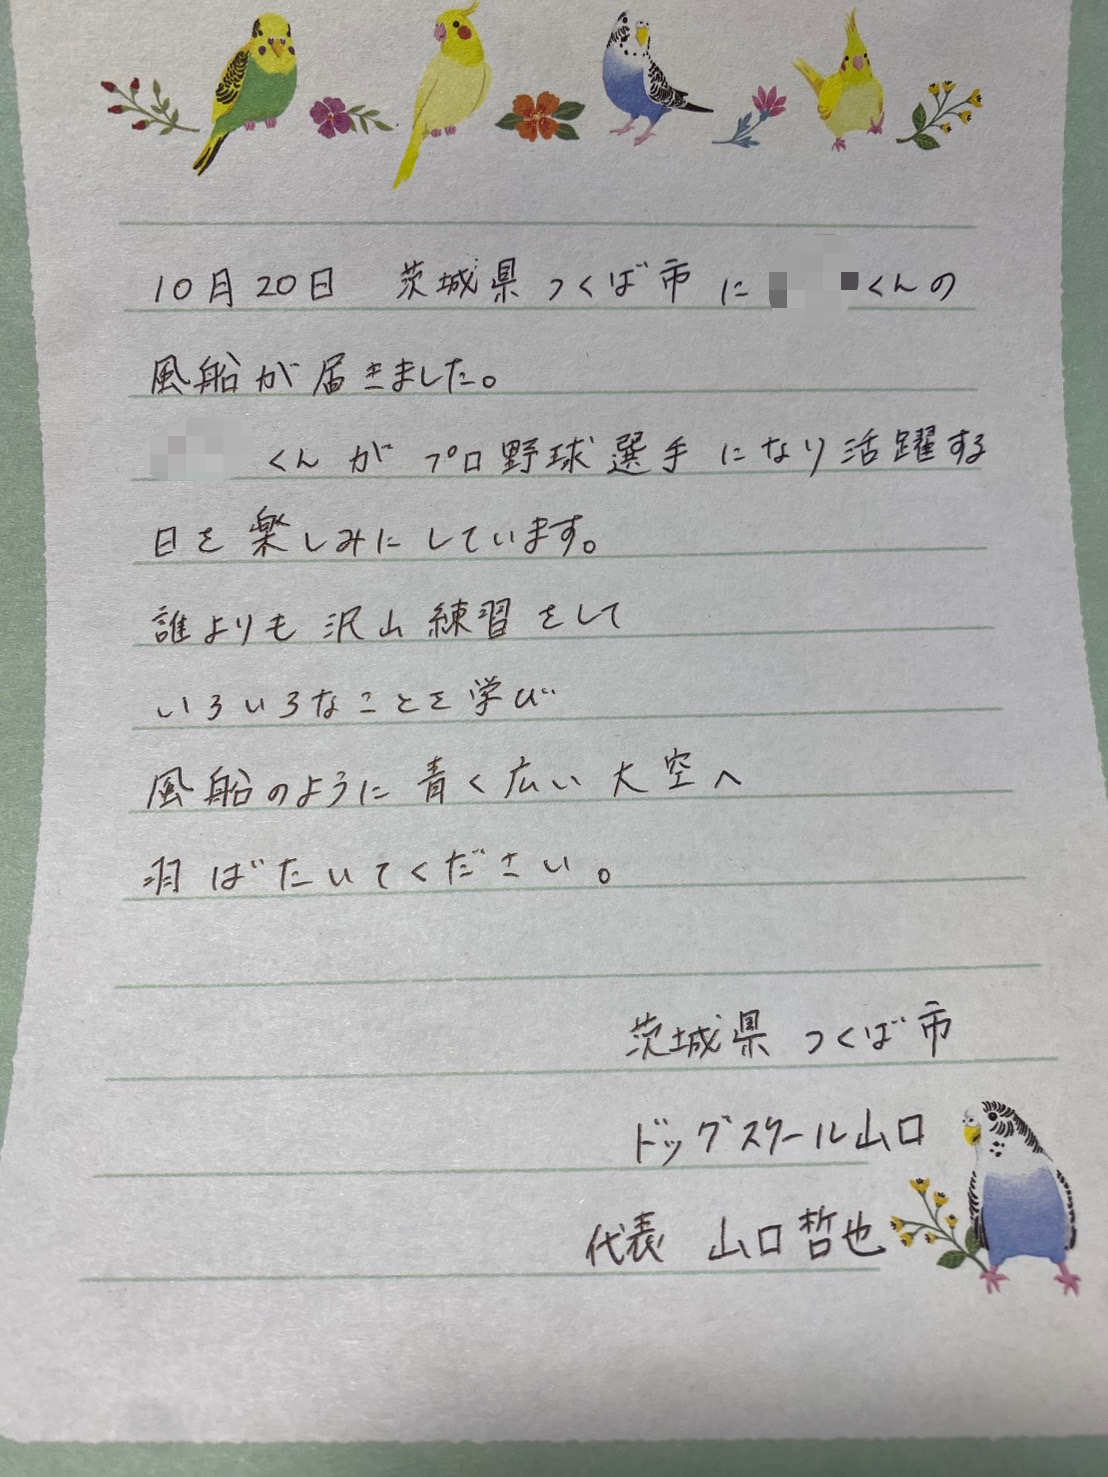 10月20日 茨城県つくば市に くんの
風船が届きました。
くんがプロ野球選手になり活躍する
日を楽しみにしています。
誰よりも沢山練習をして
いろいろなことを学び
風船のように青く広い大空へ
羽ばたいてください。
茨城県つくば市
ドッグスクール山口
代表 山口哲也